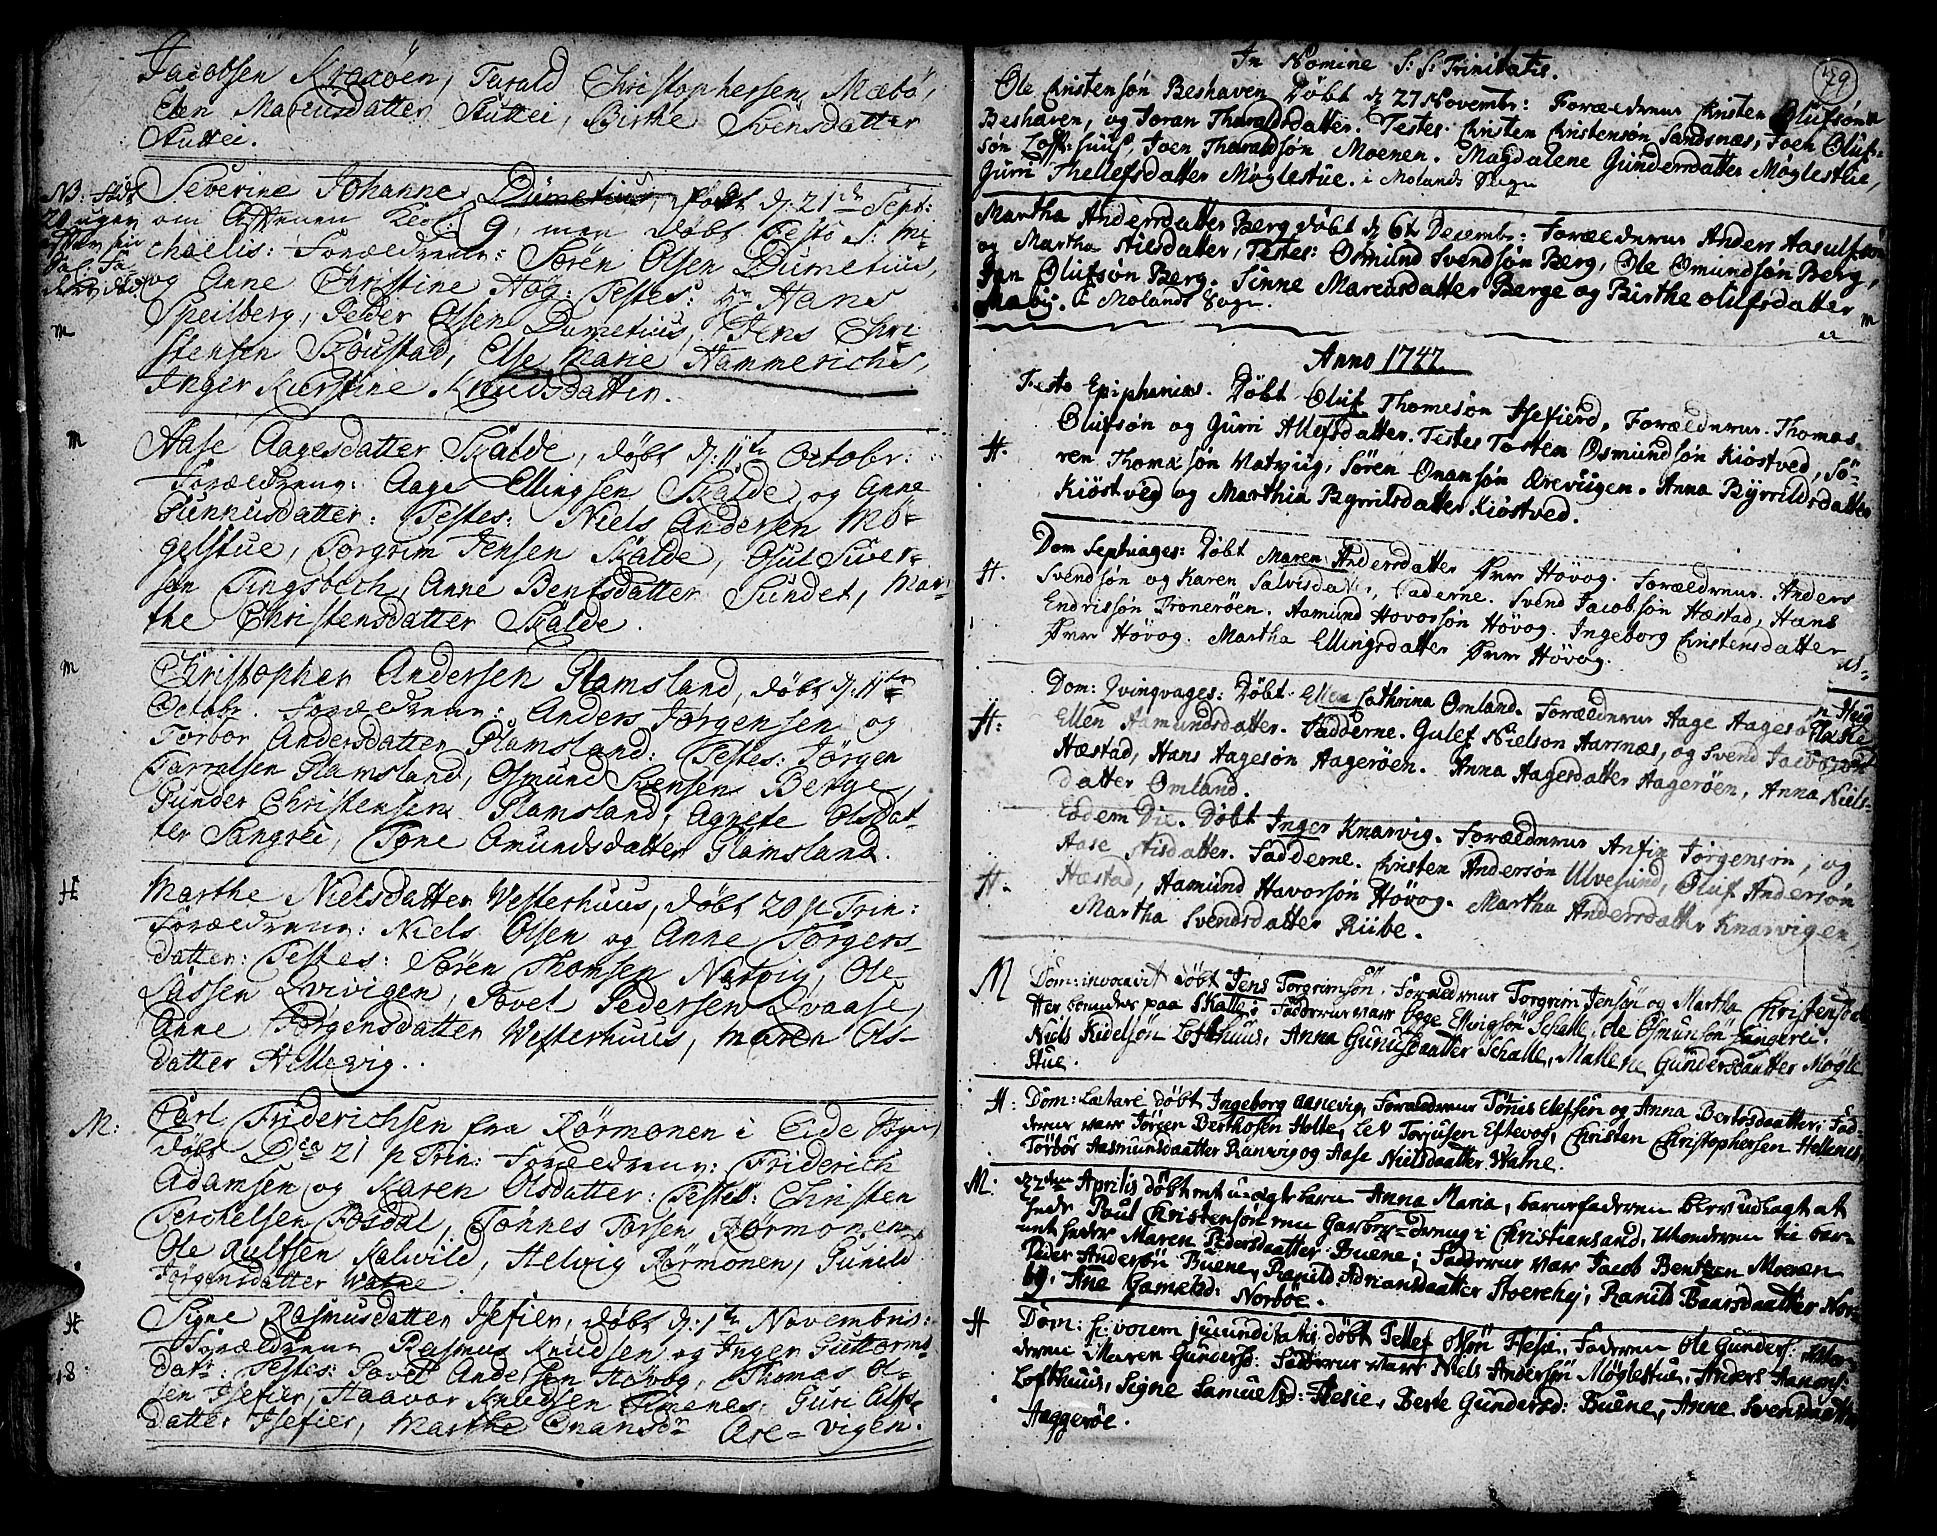 Jacobsen Kraxöen, Tarald Christophersen Mæbö,
Elen Marcusdatter Stuttei, Birthe Svensdatter
Stuttei.
NB: født
20 uger
efter sin
Sal: Fa-
ders død.
Severine Johanne Dumetius, født d: 21de Sept:
om Aftenen Kl: 9, men döbt Festo S: Mi-
chaelis: Forældrene: Sören Olsen Dumetius,
og Anne Christine Hog: Testes: Hr Hans
Speilberg, Peder Olsen Dumetius, Jens Chri-
M
stensen Skoustad, Else Marie Hammerichs,
Inger Kierstine Knudsdatter.
M
Aase Aagesdatter Skalde, döbt d: 11te Octobr:
Forældrene: Aage Ellingsen Skalde og Anne
Gunnusdatter: Testes: Niels Andersen Mö-
gelstue, Torgrim Jensen Skalde, Osul Siver-
sen Tingsbech, Anne Bentsdatter Sundet, Mar-
the Christensdatter Skalde.
M
Christopher Andersen Glamsland, döbt d: 11te
Octobr. Forældrene: Anders Jörgensen og
Torbor Andersdatter Glamsland: Testes: Jörgen
Tarralsen Glamsland, Osmund Svensen Berge,
Gunder Christensen Glamsland, Agnete Olsdat-
ter Sangrei, Tone Omundsdatter Glamsland.
H
Marthe Nielsdatter Vesterhuus, döbt 20 p Trin:
Forældrene: Niels Olsen og Anne Törgers-
datter: Testes: Sören Thomsen Natvig, Ole
Lassen Qvivigen, Povel Pedersen Qvaase,
Anne Törgensdatter Vesterhuus, Maren Ols-
datter Hellevig.
M:
Carl Friderichsen fra Körmonen i Eide Sogn,
döbt Dca 21 p Trin: Forældrene: Friderich
Adamsen og Karen Olsdatter: Testes: Christen
Terchelsen Fosdal, Tönnes Torsen Körmonen,
Ole Aulfsen Kalvild, Helvig Körmonen, Gunild
Jörgensdatter Watne.
H
Signe Rasmusdatter Isefier, döbt d: 1te Novembris:
Forældrene Rasmus Knudsen og Inger Guttorms-
18:
datr: Testes: Povel Andersen Hövog, Thomas Ol-
sen Isefier, Haavor Knudsen Omenes, Guri Alfs-
datter Isefier, Marthe Enansdr Ore-vigen.
79
In Nomine S: S: Trinitatis.
Ole Christensön Beshaven Döbt d 27 Novembr: Forældrene Christen Olufsön
Beshaven, og Joran Tharaldsdatter. Testes. Christen Christensön Sandsnæs, Joen Oluf-
sön Loft-huus, Joen Tharaldsön Moenen. Magdalene Gundersdatter Möglestue,
Gurri Thellefsdatter Möglestue. i Molands Sogn
Martha Andersdatter Berg döbt d 6te Decembr: Forældrene Anders Aasulfsön
og Martha Nilsdatter, Testes: Osmund Svendsön Berg, Ole Omundsön Berg,
Jan Olufsön Berg. Sinne Marcusdatter Berge og Birthe Olufsdatter
i Molands Sogn.
M
Anno 1747.
Festo Epiphanias. Döbt Oluf Thomesön Isefierd, Forældrene. Thomas
Olufsön og Gurri Allefsdatter. Testes Tosten Osmundsön Kiöstved, Sö-
H.
ren Thomæsön Natvüg, Sören Onansön Örevügen. Anna Byrrildsdatter
Kiöstved og Marthia Byrrilsdatter Kiöstved.
Dom Septuages: Döbt Maren Andersdatter Hövog. Forældrene. Anders
H.
Svendsön og Karen Salvisdatter, Fadderne. Svend Jacobsön Hæstad, Hans
Endrissön Troneröen. Aamund Hovorsön Hövog. Ingeborg Christensdatter
Hövog. Martha Ellingsdatter Hövog.
Dom: Qvinqvages: Döbt Ellen Cathrina Omland. Forældrene Aage Aagesön
H:
Ellen Aamundsdatter. Fadderne. Gulef Nielson Aarnæs, og Svend Jacobsön
Hæstad, Hans Aagesön Aageröen. Anna Aagesdatter Aageröen, Anna Niels-
datter Omland.
Eodem Die. Döbt Inger Knarvig. Forældrene Anfin Jörgensön, og
Aase Nisdatter. Fadderne. Christen Andersön Ulvesund, Oluf Andersön
H.
Hæstad, Aamund Havorsön Hövog. Martha Andersdatter Knarvigen,
Martha Svendsdatter Riibe.
M
Dom: invocavit döbt Jens Torgrimsön. Forældrene Torgrim Jensön og Martha Christensdat
Her boende paa Skalle: Fadderne vare Ogge Ellingsön Schalle, Ole Osmunsön Sangerei.
Niels Kidelsön Lofthuus, Anna Gunusdaatter Schalle, Mallene Gundersdaatter Mögle
stue.
H:
Dom: Lætare döbt Ingeborg Aanevig, Forældrene Tönes Elefsen og Anna Bertosdaatter, Fad-
derne vare Jörgen Berthosen Holte, Lev Torjusen Eftevog, Christen Christophersen Hellenes
Torbör Aasmunsdaatter Ranvig og Aase Nielsdaatter Watne.
M.
22den Aprilis döbt et uægt barn Anna Maria, barnefaderen blev udlagt at
hede Poul Christensön en Garber-dreng i Christiansand, Moderen til bar-
net heder Maren Pedersdaatter Buene; Fadderne vare Jacob Bentsen Moenen
Peder Andersön Buene, Ranild Adriansdaatter Stoerehej, Ranild Baarsdaatter Nor-
bö, Ane Gamelsd: Norböe.
H
Dom: h: vocem jucunditatis döbt Tellef Olsön Hæsie, Faderen Ole Gunders: Mo-
deren Maren Gundersd: Fadderne vare Niels Andersön Möglestue, Anders Aanons:
Lofthuus, Signe Samuelsd: Hæsie, Berte Gundersd: Buene, Anne Svensdaatter
Haggeröe.